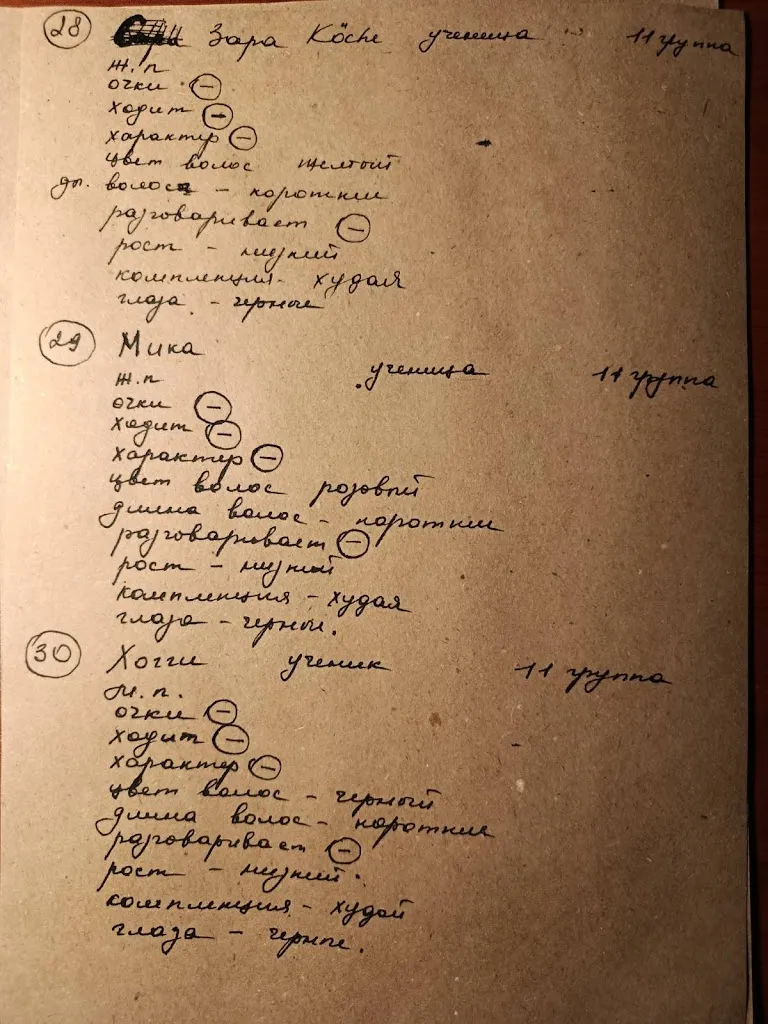 28 Зара Köche ученица 11 группа
ж.п
очки ⊖
ходит ⊖
характер ⊖
цвет волос желтый
дл. волос - короткие
разговаривает ⊖
рост - низкий
комплекция - худая
глаза - черные
29 Мика
ученица 11 группа
ж.п
очки ⊖
ходит ⊖
характер ⊖
цвет волос розовый
длина волос - короткие
разговаривает ⊖
рост - низкий
комплекция - худая
глаза - черные.
30 Хогги ученик 11 группа
м.п.
очки ⊖
ходит ⊖
характер ⊖
цвет волос - черный
длина волос - короткие
разговаривает ⊖
рост - низкий.
комплекция - худой
глаза - черные.